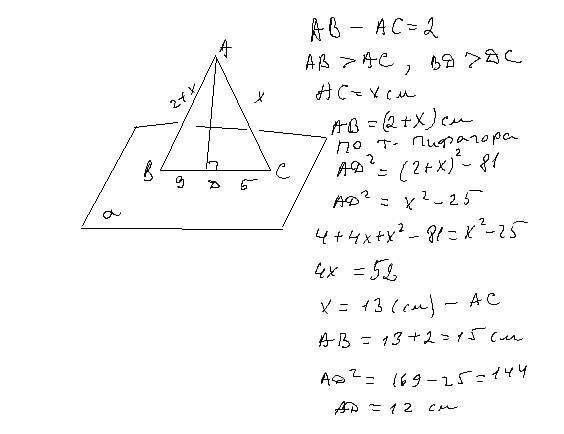 AB - AC = 2
AB > AC, BD > DC
AC = x см
AB = (2+x) см
по т. Пифагора
AD² = (2+x)² - 81
AD² = x² - 25
4 + 4x + x² - 81 = x² - 25
4x = 52
x = 13 (см) - AC
AB = 13 + 2 = 15 см
AD² = 169 - 25 = 144
AD = 12 см
A
2+x
x
B
9
D
5
C
a